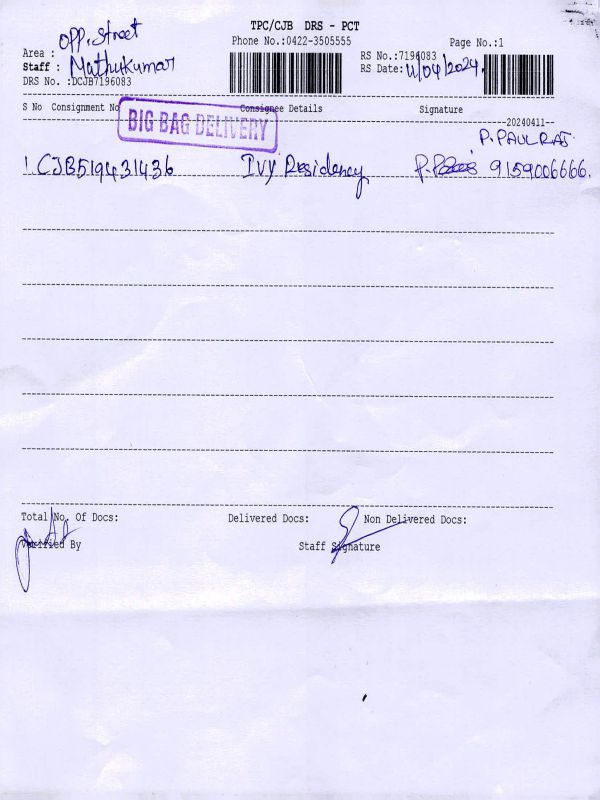 TPC/CJB DRS - PCT
Opp. Street
Phone No.:0422-3505555
Page No.:1
Area :
RS No.:7196083
Staff : Muthukumar
RS Date: 11/04/2024.
DRS No. :DCJB7196083
S No Consignment No Consignee Details Signature
BIG BAG DELIVERY
20240411
P. PAULRAJ
1 CJB519431436 Ivy Residency 9159006666.
Total No. Of Docs: Delivered Docs: Non Delivered Docs:
Verified By Staff Signature